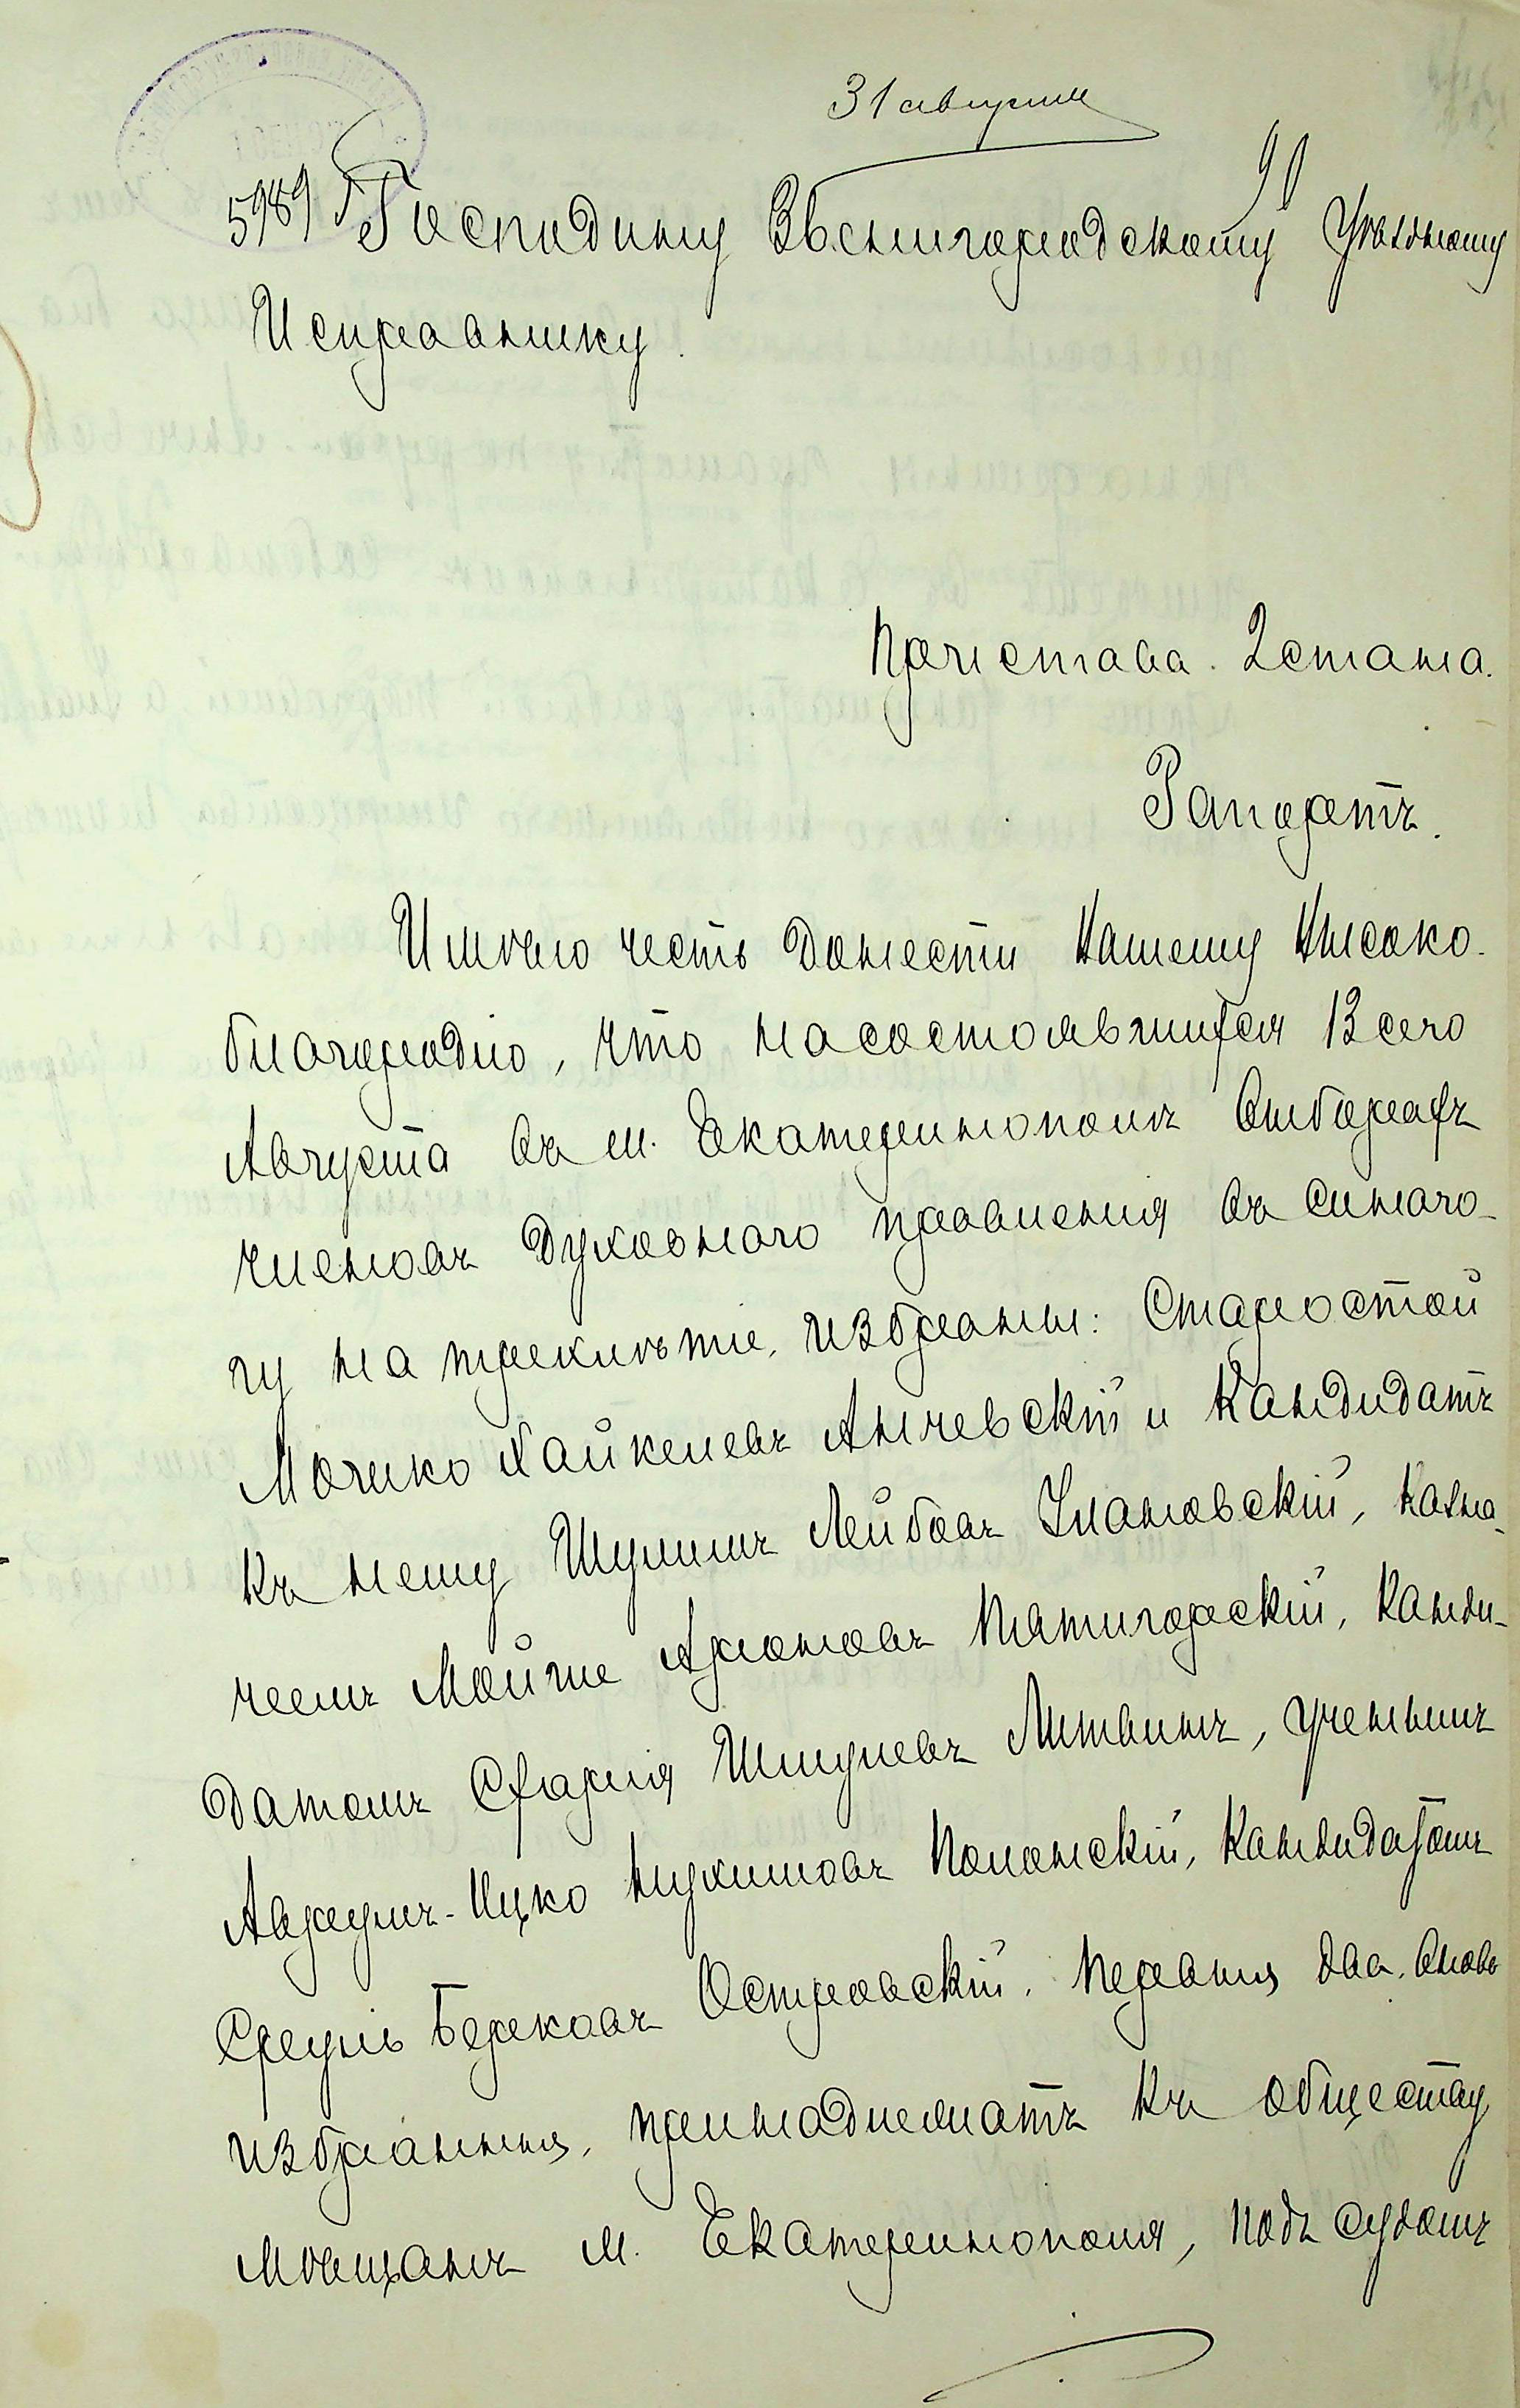 31 августа
90
5989 Господину Звенигородскому Уѣздному
Исправнику.
Пристава 2 стана.
Рапортъ.
Имѣю честь донести Вашему Высоко-
благородію, что на состоявшихся 13 сего
Августа въ м. Екатеринополѣ выборахъ
членовъ Духовнаго правленія въ синаго-
гу на трехлѣтіе, избраны: Старостой
Мошко Хайкелевъ Аничевскій и Кандидатъ
къ нему Шулимъ Лейбовъ Улановскій, Казна-
чеемъ Мойше Ароновъ Пятигорскій, Канди-
датомъ Сфарія Шмулевъ Литвинъ, ученымъ
Аврумъ-Ицко Нухимовъ Полонскій, Кандидатомъ
Сруль Берковъ Островскій. Первыя два, вновь
избранныя, принадлежатъ къ обществу
мѣщанъ м. Екатеринополя, подъ судомъ